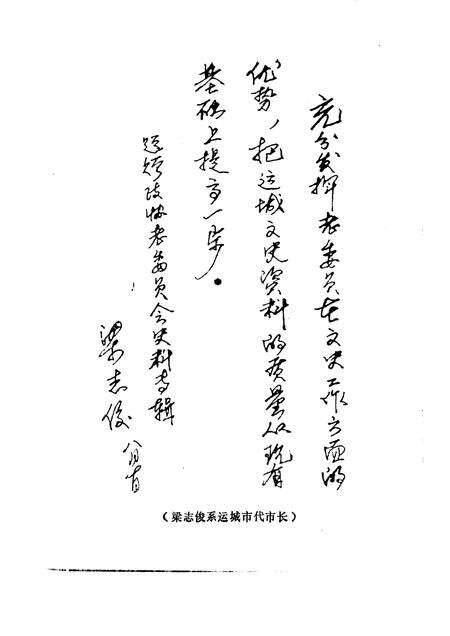 充分发挥老委员在文史工作方面的
优势，把运城文史资料的质量从现有
基础上提高一步。
题赠政协老委员会史料专辑
梁志俊 八月
（梁志俊系运城市代市长）